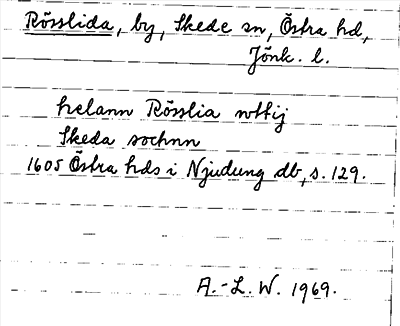 Rösslida, by, Skede sn, Östra hd,
Jönk. l.
helann Rösslia wttij
Skeda sochnn
1605 Östra hds i Njudung db, s. 129.
A.-L. W. 1969.